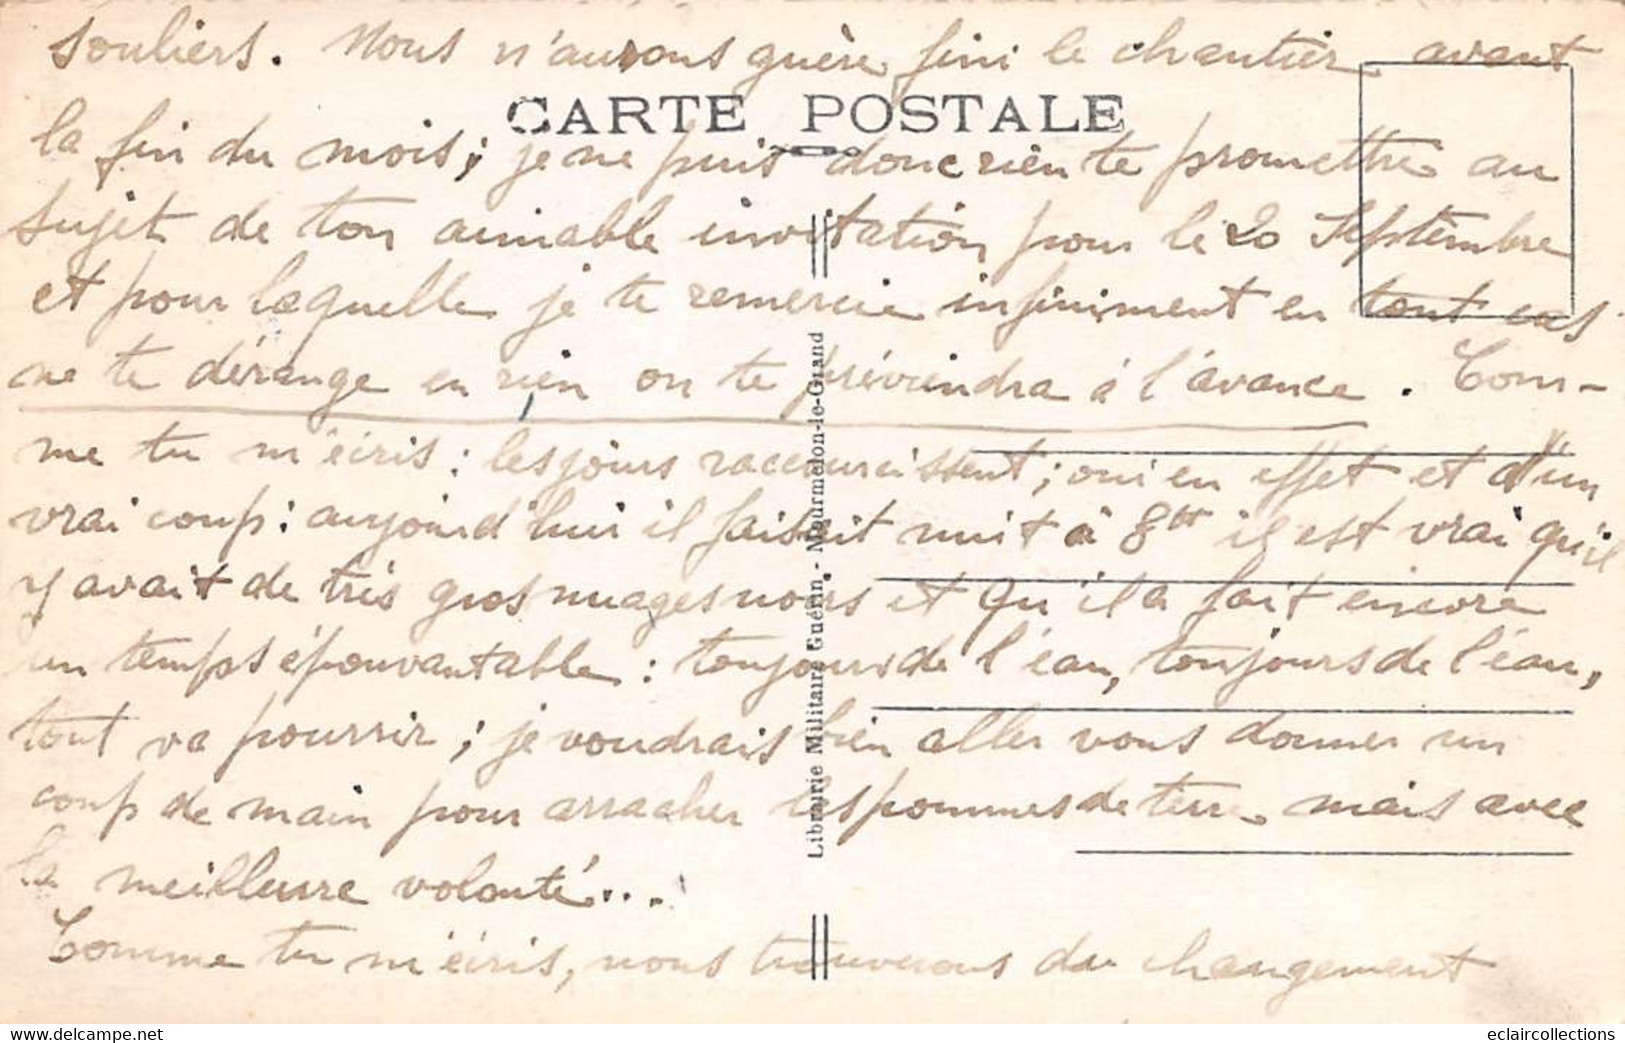 souliers. Nous n'aurons guère fini le chantier avant
CARTE POSTALE
la fin du mois; je ne puis donc rien te promettre au
sujet de ton aimable invitation pour le 20 Septembre
et pour laquelle je te remercie infiniment en tout cas
ne te dérange en rien on te préviendra à l'avance. Com-
me tu m'écris: les jours raccourcissent; oui en effet et d'un
vrai coup: aujourd'hui il faisait nuit à 8h il est vrai qu'il
y avait de très gros nuages noirs et qu'il a fait encore
un temps épouvantable: toujours de l'eau, toujours de l'eau,
tout va pourrir; je voudrais bien aller vous donner un
coup de main pour arracher les pommes de terre mais avec
la meilleure volonté...
Comme tu m'écris, nous trouverons du changement
Librairie Militaire Guérin, - Mourmelon-le-Grand
www.delcampe.net
eclaircollections